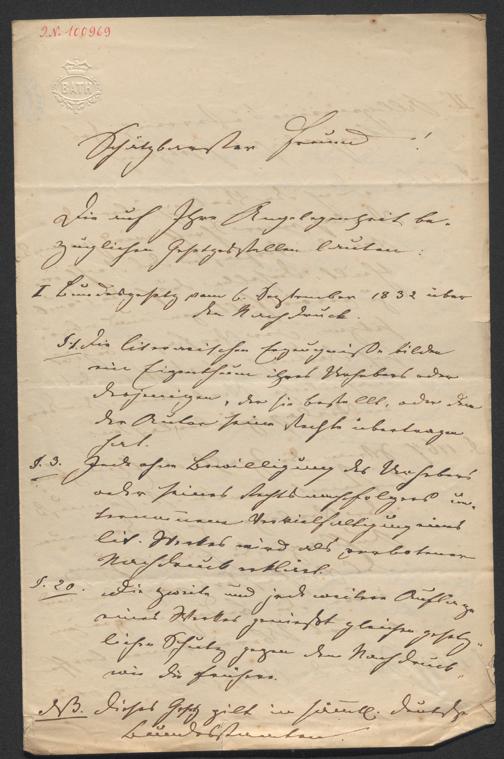 I.N. 100969
BATH
Schätzbarster Freund!
Die auf Ihre Angelegenheit be-
züglichen Gesetzesstellen lauten:
I Bundesgesetz vom 6. September 1832 über
den Nachdruck.
§.1. Die literarischen Erzeugnisse bilden
ein Eigenthum ihres Urhebers oder
desjenigen, der sie bestellt, oder dem
der Autor seine Rechte übertragen
hat.
§. 3. Jede ohne Bewilligung des Urhebers
oder seines Rechtsnachfolgers un-
ternommene Vervielfältigung eines
lit. Werkes wird als verbotener
Nachdruck erklärt.
§. 20. Die zweite und jede weitere Auflage
eines Werkes genießt gleichen gesetz-
lichen Schutz gegen den Nachdruck
wie die frühere.
Dieses Gesetz gilt in sämtl. deutsche
Bundesstaaten.